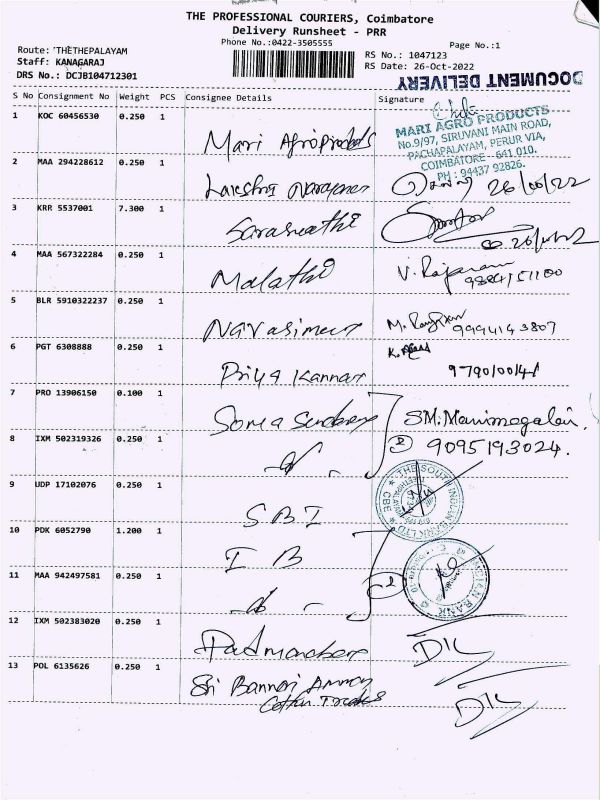 THE PROFESSIONAL COURIERS, Coimbatore
Delivery Runsheet - PRR
Phone No.:0422-3505555
Page No.:1
Route: 'THETHEPALAYAM
Staff: KANAGARAJ
DRS No.: DCJB104712301
RS No.: 1047123
RS Date: 26-Oct-2022
DOCUMENT DELIVERY
S No Consignment No Weight PCS Consignee Details Signature
1 KOC 60456530 0.250 1 Mari Agro Products
MARI AGRO PRODUCTS
No.9/97, SIRUVANI MAIN ROAD,
PACHAPALAYAM, PERUR VIA,
COIMBATORE - 641 010.
PH : 94437 92826.
2 MAA 294228612 0.250 1 Lakshmi Narayanan
3 KRR 5537001 7.300 1 Saraswathi
4 MAA 567322284 0.250 1 Malathi V. Rajaram
5 BLR 5910322237 0.250 1 Narasiman M.
9994143807
6 PGT 6308888 0.250 1 Priya Kannan K.
7 PRO 13906150 0.100 1 SM. Manimegalai,
8 IXM 502319326 0.250 1 ② 9095193024.
9 UDP 17102076 0.250 1 SBI
THE SOUTH INDIAN BANK LTD
CBE
10 PDK 6052790 1.200 1 IB
INDIAN BANK
11 MAA 942497581 0.250 1
12 IXM 502383020 0.250 1
13 POL 6135626 0.250 1 Sri Bannari Amman
Cotton Traders